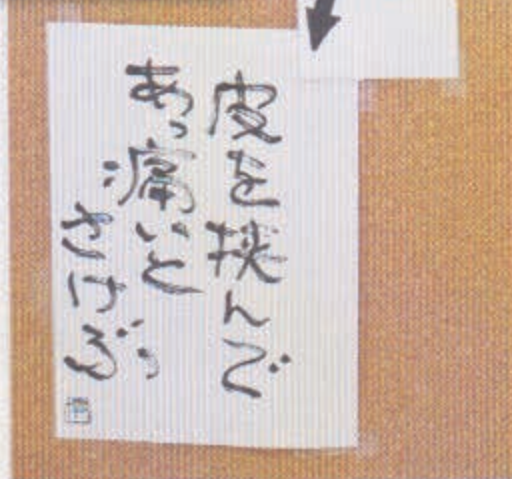 皮を挟んで
あっ痛いと
さけぶ